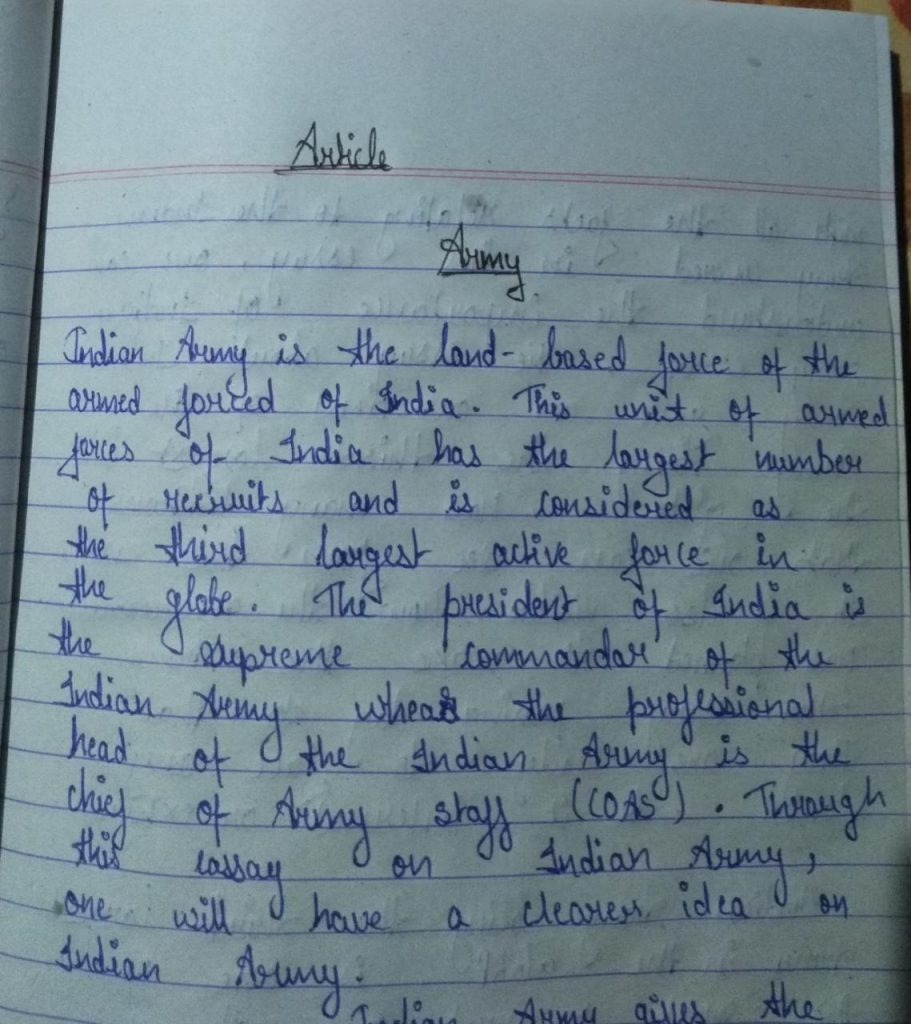 Article
Army
Indian Army is the land-based force of the
armed forced of India. This unit of armed
forces of India has the largest number
of recruits and is considered as
the third largest active force in
the globe. The president of India is
the supreme commandar of the
Indian Army wheas the professional
head of the Indian Army is the
chief of Army staff (COAS). Through
this eassay on Indian Army,
one will have a clearer idea on
Indian Army.
Indian Army gives the